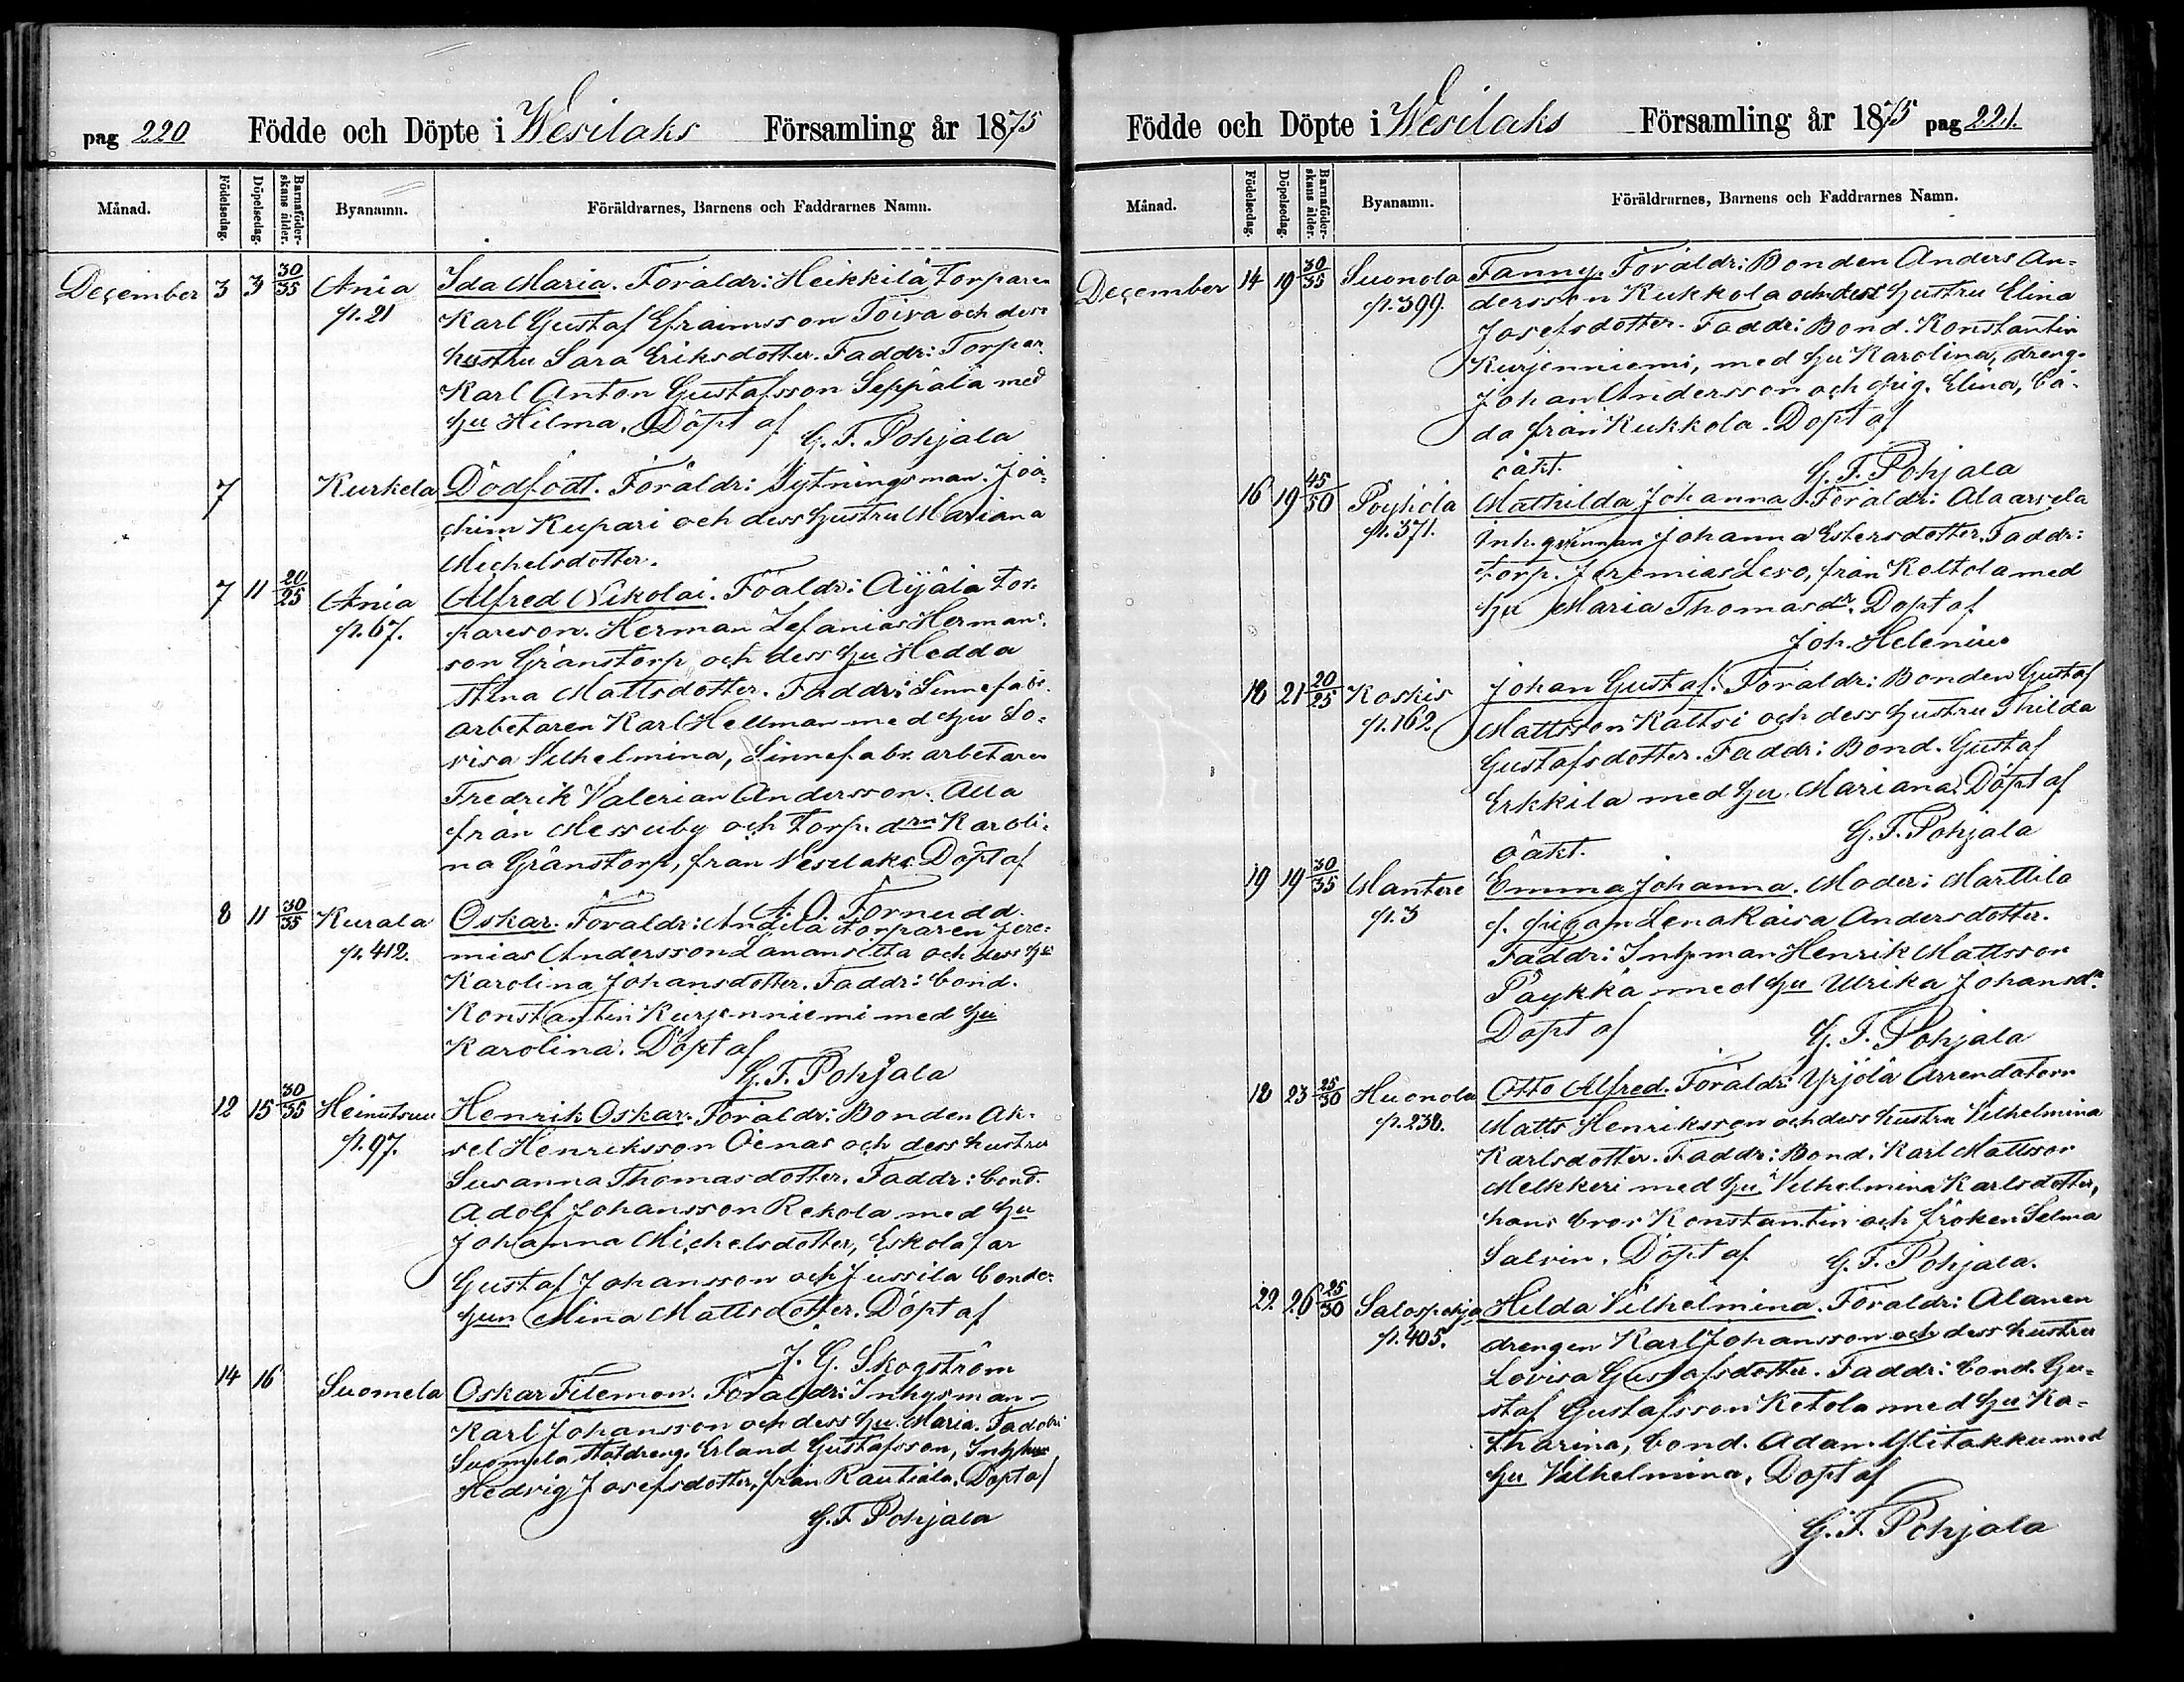 pag 220 Födde och Döpte i Wesilaks Församling år 1875
Månad. Födelsedag. Döpelsedag. Barnaföderskans ålder. Byanamn. Föräldrarnes, Barnens och Faddrarnes Namn.
December 3 3 30/35 Ania Ida Maria. Föräldr: Heikkilä Torparen
p. 21 Karl Gustaf Efraimsson Toiva och dess
hustru Sara Eriksdotter. Faddr: Torpar.
Karl Anton Gustafsson Seppälä med
hu Hilma. Döpt af
G. F. Pohjala
7 Kurkela Dödfödt. Föräldr: Sytningsman. Joa-
chim Kupari och dess hustru Mariana
Michelsdotter.
7 11 20/25 Ania Alfred Nikolai. Föaldr: Äijälä tor-
p. 67. pareson. Herman Zefanias Hermans-
son Gränstorp och dess hu Hedda
Stina Mattsdotter. Faddr: Linnefabr.
arbetaren Karl Hellman med hu Lo-
visa Vilhelmina, Linnefabr. arbetaren
Fredrik Valerian Andersson. Alla
från Messuby och Torp. drn Karoli-
na Gränstorp, från Vesilaks. Döpt af
A. O. Törnudd.
8 11 30/35 Kurala Oskar. Föräldr: Andila torparen Jere-
p. 412. mias Andersson Lanansitta och dess hu
Karolina Johansdotter. Faddr: bond.
Konstantin Kurjenniemi med hu
Karolina. Döpt af
G. F. Pohjala
12 15 30/35 Heinutsuu Henrik Oskar. Föräldr: Bonden Ak-
p. 97. sel Henriksson Oenas och dess hustru
Susanna Thomasdotter. Faddr: bond.
Adolf Johansson Rekola med hu
Johanna Michelsdotter, Eskola far
Gustaf Johansson och Jussila bonde-
hun Mina Mattsdotter. Döpt af
J. G. Skogström
14 16 Suomela Oskar Filemon. Föräldr: Inhysman-
Karl Johansson och dess hu. Maria. Faddr:
Suomela statdreng. Erland Gustafsson, Inhy
Hedvig Josefsdotter, från Rautiala. Döpt af
G. F. Pohjala
Födde och Döpte i Wesilaks Församling år 1875 pag 221.
Månad. Födelsedag. Döpelsedag. Barnaföderskans ålder. Byanamn. Föräldrarnes, Barnens och Faddrarnes Namn.
December 14 19 30/35 Suonola Fanny. Föräldr: Bonden Anders An-
p. 399. dersson Kukkola och dess hustru Elina
Josefsdotter. Faddr: Bond. Konstantin
Kurjenniemi, med hu Karolina, dreng.
Johan Andersson och pig. Elina, bå-
da från Kukkola. Döpt af
oäkt. G. F. Pohjala
16 19 45/50 Pöyhölä Mathilda Johanna. Föräldr: Alaarvela
p. 371. Inh. qvinnan Johanna Estersdotter. Faddr:
Torp. Jeremias Levo, från Koltola med
hu Maria Thomasdr. Döpt af
Joh. Helenius
18 21 20/25 Koskis Johan Gustaf. Föräldr: Bonden Gustaf
p. 162. Mattsson Kaltsi och dess hustru Thilda
Gustafsdotter. Faddr: Bond. Gustaf
Erkkila med hu Mariana. Döpt af
oäkt. G. F. Pohjala
19 19 30/35 Mantere Emma Johanna. Moder: Marttila
p. 3 f. pigan Lena Kaisa Andersdotter.
Faddr: Inh. man Henrik Mattsson
Päykkä med hu Ulrika Johansdr.
Döpt af G. F. Pohjala
18 23 25/30 Huonola Otto Alfred. Föräldr: Yrjölä Arrendatorn
p. 238. Matts Henriksson och dess hustru Vilhelmina
Karlsdotter. Faddr: Bond. Karl Mattsson
Melkkeri med hu Vilhelmina Karlsdotter,
hans bror Konstantin och fröken Selma
Salvin. Döpt af G. F. Pohjala.
22 26 25/30 Salospohja Hilda Vilhelmina. Föräldr: Alanen
p. 405. drengen Karl Johansson och dess hustru
Lovisa Gustafsdotter. Faddr: bond. Gu-
staf Gustafsson Ketola med hu Ka-
tharina, bond. Adam Ylitakku med
hu Vilhelmina. Döpt af
G. F. Pohjala